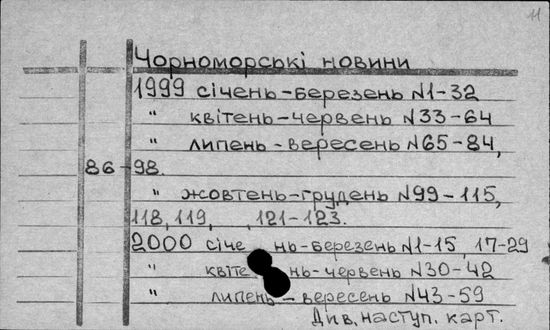 11
Чорноморські новини
1999 січень-березень №1-32
" квітень-червень №33-64
" липень-вересень №65-84,
86-98.
" жовтень-грудень №99-115,
118, 119, , 121-123.
2000 січе нь-березень №1-15, 17-29
" квіте нь-червень №30-42
" липень-вересень №43-59
Див. наступ. карт.